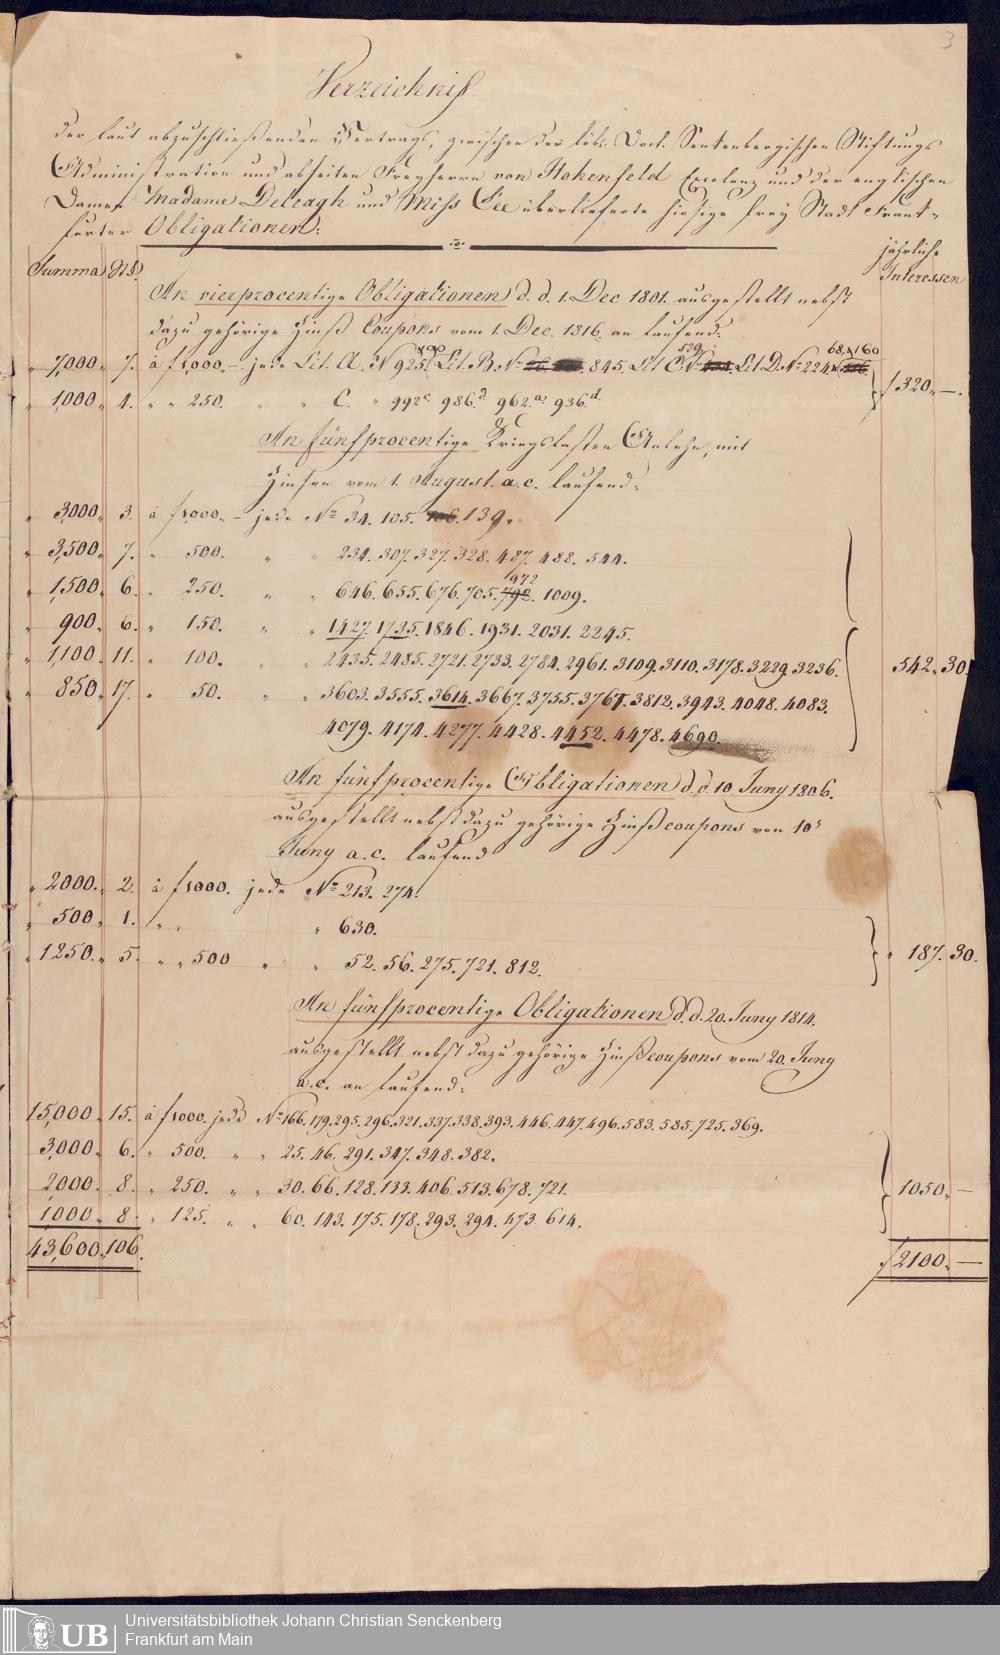 3
Verzeichniß
der laut abzuschließenden Vertrags, zwischen der löb. Doct. Senkenbergischen Stiftungs
Administration und abseiten Freyherrn von Hohenfeld Excelenz und der englischen
Damen Madame Delcagh und Miss Lee überlieferte hiesige frey Stadt Frank-
furter Obligationen:
jährliche
Summa Interessen
An vierprocentige Obligationen d. d. 1. Dec 1801. ausgestellt nebst
dazu gehörige Zinß Coupons vom 1. Dec. 1816. an laufend:
" 7,000 " 7. à f 1,000, –. jede Lit. A. N 925. Lit. B. No 845. Lit C. No 539 Lit D. No 224. 68. 160
" 1,000 " 4. " " 250. " " C. " 992c 986.d 962.a 936.d f 320,, —.
An fünfprocentige Kriegslasten Anlehn, mit
Zinsen vom 1. August. a. c. laufend:
" 3,000 " 3. à f 1,000,, – jede No 34. 105. 106. 139.
" 3,500 " 7. " 500. " " 234. 307. 327. 328. 487. 488. 544.
" 1,500 " 6. " 250. " " 646. 655. 676. 705. 792. 972 1009.
" 900 " 6. " 150. " " 1427. 1735. 1846. 1931. 2031. 2245.
" 1,100 " 11. " 100. " " 2435. 2485. 2721. 2733. 2784. 2961. 3109. 3110. 3178. 3229. 3236. 542 " 30.
" 850 " 17. " 50. " " 3603. 3555. 3614. 3667. 3755. 3767. 3812. 3943. 4048. 4083.
4079. 4174. 4277. 4428. 4452. 4478. 4690.
An fünfprocentige Obligationen d. d. 10 Juny 1806.
ausgestellt nebst dazu gehörige Zinß coupons von 10t
Juny a. c. laufend
" 2000. " 2. à f 1000. jede No 213. 274.
" 500 " 1. " " " 630.
" 1250. " 5. " " 500 " " 52. 56. 275. 721. 812. " 187. 30.
An fünfprocentige Obligationen d. d. 20. Juny 1814.
ausgestellt nebst dazu gehörige Zinß coupons vom 20. Juny
a. c. an laufend:
15,000 " 15. à f 1000. jede No 166. 179. 295. 296. 321. 337. 338. 393. 446. 447. 496. 583. 585. 725. 369.
3,000 " 6. " 500. " " 25. 46. 291. 347. 348. 382.
2,000. 8. " 250. " " 30. 66. 128. 133. 406. 513. 678. 721. 1050,, —
1,000 " 8. " 125. " " 60. 143. 175. 178. 293. 294. 473 614.
43,600 " 106. f 2100,, —
UB
Universitätsbibliothek Johann Christian Senckenberg
Frankfurt am Main